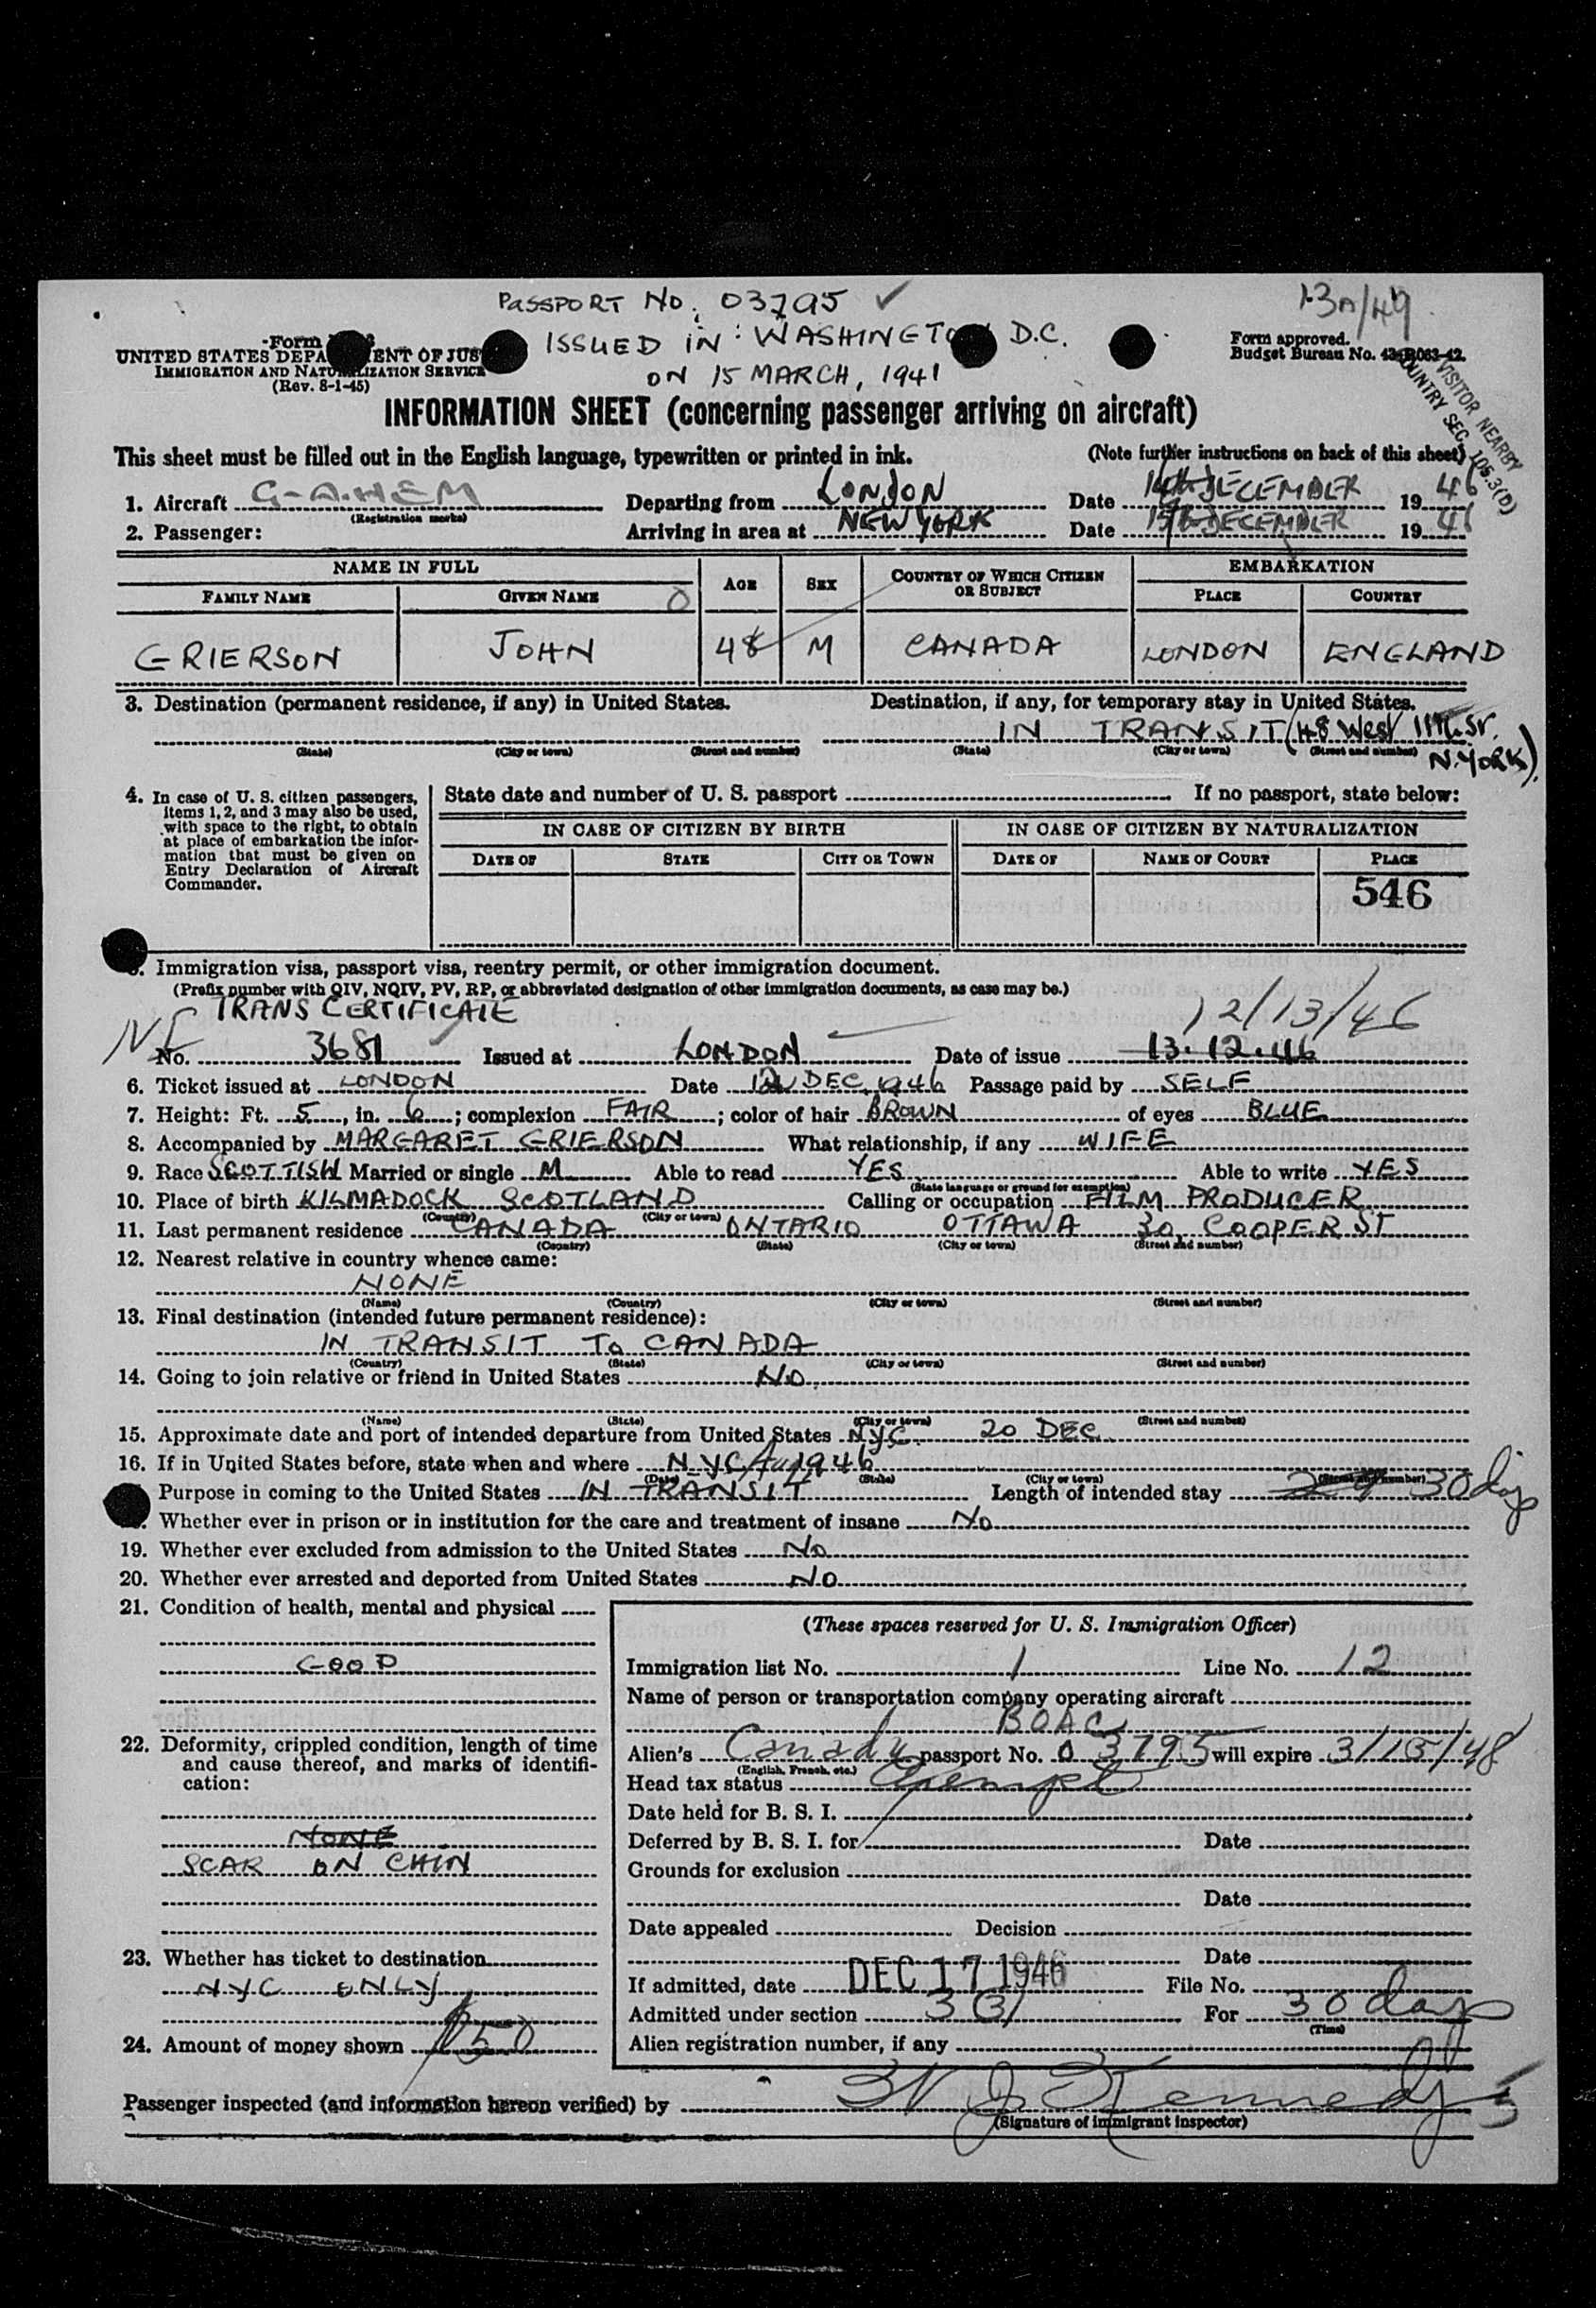 PASSPORT No. 03795 ✓
13A/49
ISSUED IN: WASHINGTON D.C.
ON 15 MARCH, 1941
Form
UNITED STATES DEPA ENT OF JUS
IMMIGRATION AND NATURALIZATION SERVICE
(Rev. 8-1-45)
Form approved.
Budget Bureau No. 43-R063-42.
VISITOR NEARBY
COUNTRY SEC. 105.3(D)
INFORMATION SHEET (concerning passenger arriving on aircraft)
This sheet must be filled out in the English language, typewritten or printed in ink. (Note further instructions on back of this sheet)
1. Aircraft G-AHEM Departing from LONDON Date DECEMBER 1946
(Registration marks)
2. Passenger: Arriving in area at NEW YORK Date DECEMBER 1946
NAME IN FULL AGE SEX COUNTRY OF WHICH CITIZEN OR SUBJECT EMBARKATION
FAMILY NAME GIVEN NAME PLACE COUNTRY
GRIERSON JOHN 48 M CANADA LONDON ENGLAND
3. Destination (permanent residence, if any) in United States. Destination, if any, for temporary stay in United States.
IN TRANSIT (48 West 11th St. N. YORK)
(State) (City or town) (Street and number) (State) (City or town) (Street and number)
4. In case of U. S. citizen passengers, items 1, 2, and 3 may also be used, with space to the right, to obtain at place of embarkation the information that must be given on Entry Declaration of Aircraft Commander.
State date and number of U. S. passport If no passport, state below:
IN CASE OF CITIZEN BY BIRTH IN CASE OF CITIZEN BY NATURALIZATION
DATE OF STATE CITY OR TOWN DATE OF NAME OF COURT PLACE
546
Immigration visa, passport visa, reentry permit, or other immigration document.
(Prefix number with QIV, NQIV, PV, RP, or abbreviated designation of other immigration documents, as case may be.)
TRANS CERTIFICATE 12/13/46
No. 3681 Issued at LONDON Date of issue 13.12.46
6. Ticket issued at LONDON Date DEC 1946 Passage paid by SELF
7. Height: Ft. 5, in. 6; complexion FAIR; color of hair BROWN of eyes BLUE
8. Accompanied by MARGARET GRIERSON What relationship, if any WIFE
9. Race SCOTTISH Married or single M Able to read YES Able to write YES
(State language or ground for exemption)
10. Place of birth KILMADOCK SCOTLAND Calling or occupation FILM PRODUCER
(Country) (City or town)
11. Last permanent residence CANADA ONTARIO OTTAWA 30 COOPER ST
(Country) (State) (City or town) (Street and number)
12. Nearest relative in country whence came:
NONE
(Name) (Country) (City or town) (Street and number)
13. Final destination (intended future permanent residence):
IN TRANSIT TO CANADA
(Country) (State) (City or town) (Street and number)
14. Going to join relative or friend in United States NO
(Name) (State) (City or town) (Street and number)
15. Approximate date and port of intended departure from United States NYC. 20 DEC
16. If in United States before, state when and where NYC Aug 1946
(Date) (State) (City or town) (Street and number)
Purpose in coming to the United States IN TRANSIT Length of intended stay 30 days
Whether ever in prison or in institution for the care and treatment of insane No
19. Whether ever excluded from admission to the United States No
20. Whether ever arrested and deported from United States NO
21. Condition of health, mental and physical
GOOD
22. Deformity, crippled condition, length of time and cause thereof, and marks of identification:
NONE
SCAR ON CHIN
23. Whether has ticket to destination
NYC ONLY
24. Amount of money shown $50
(These spaces reserved for U. S. Immigration Officer)
Immigration list No. 1 Line No. 12
Name of person or transportation company operating aircraft
BOAC
Alien's Canada passport No. 03795 will expire 3/15/48
(English, French, etc.)
Head tax status Exempt
Date held for B. S. I.
Deferred by B. S. I. for Date
Grounds for exclusion
Date
Date appealed Decision
Date
If admitted, date DEC 17 1946 File No.
Admitted under section 3(3) For 30 days
(Time)
Alien registration number, if any
Passenger inspected (and information hereon verified) by J Kennedy
(Signature of immigrant inspector)